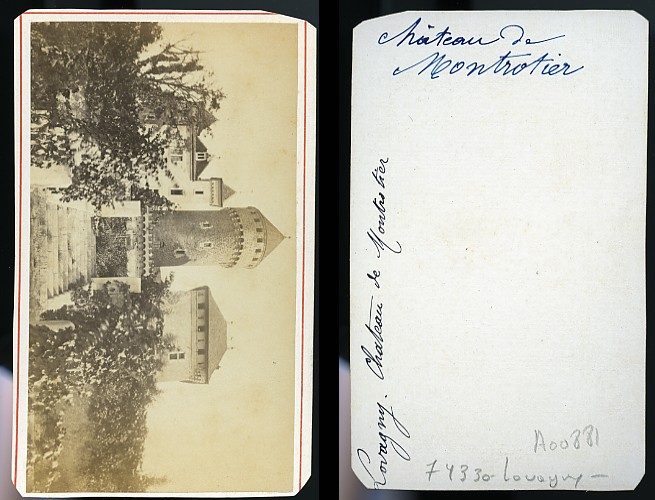 Château de
Montrotier
Lovagny. Chateau de Montrotier
A00881
74330 Lovagny -